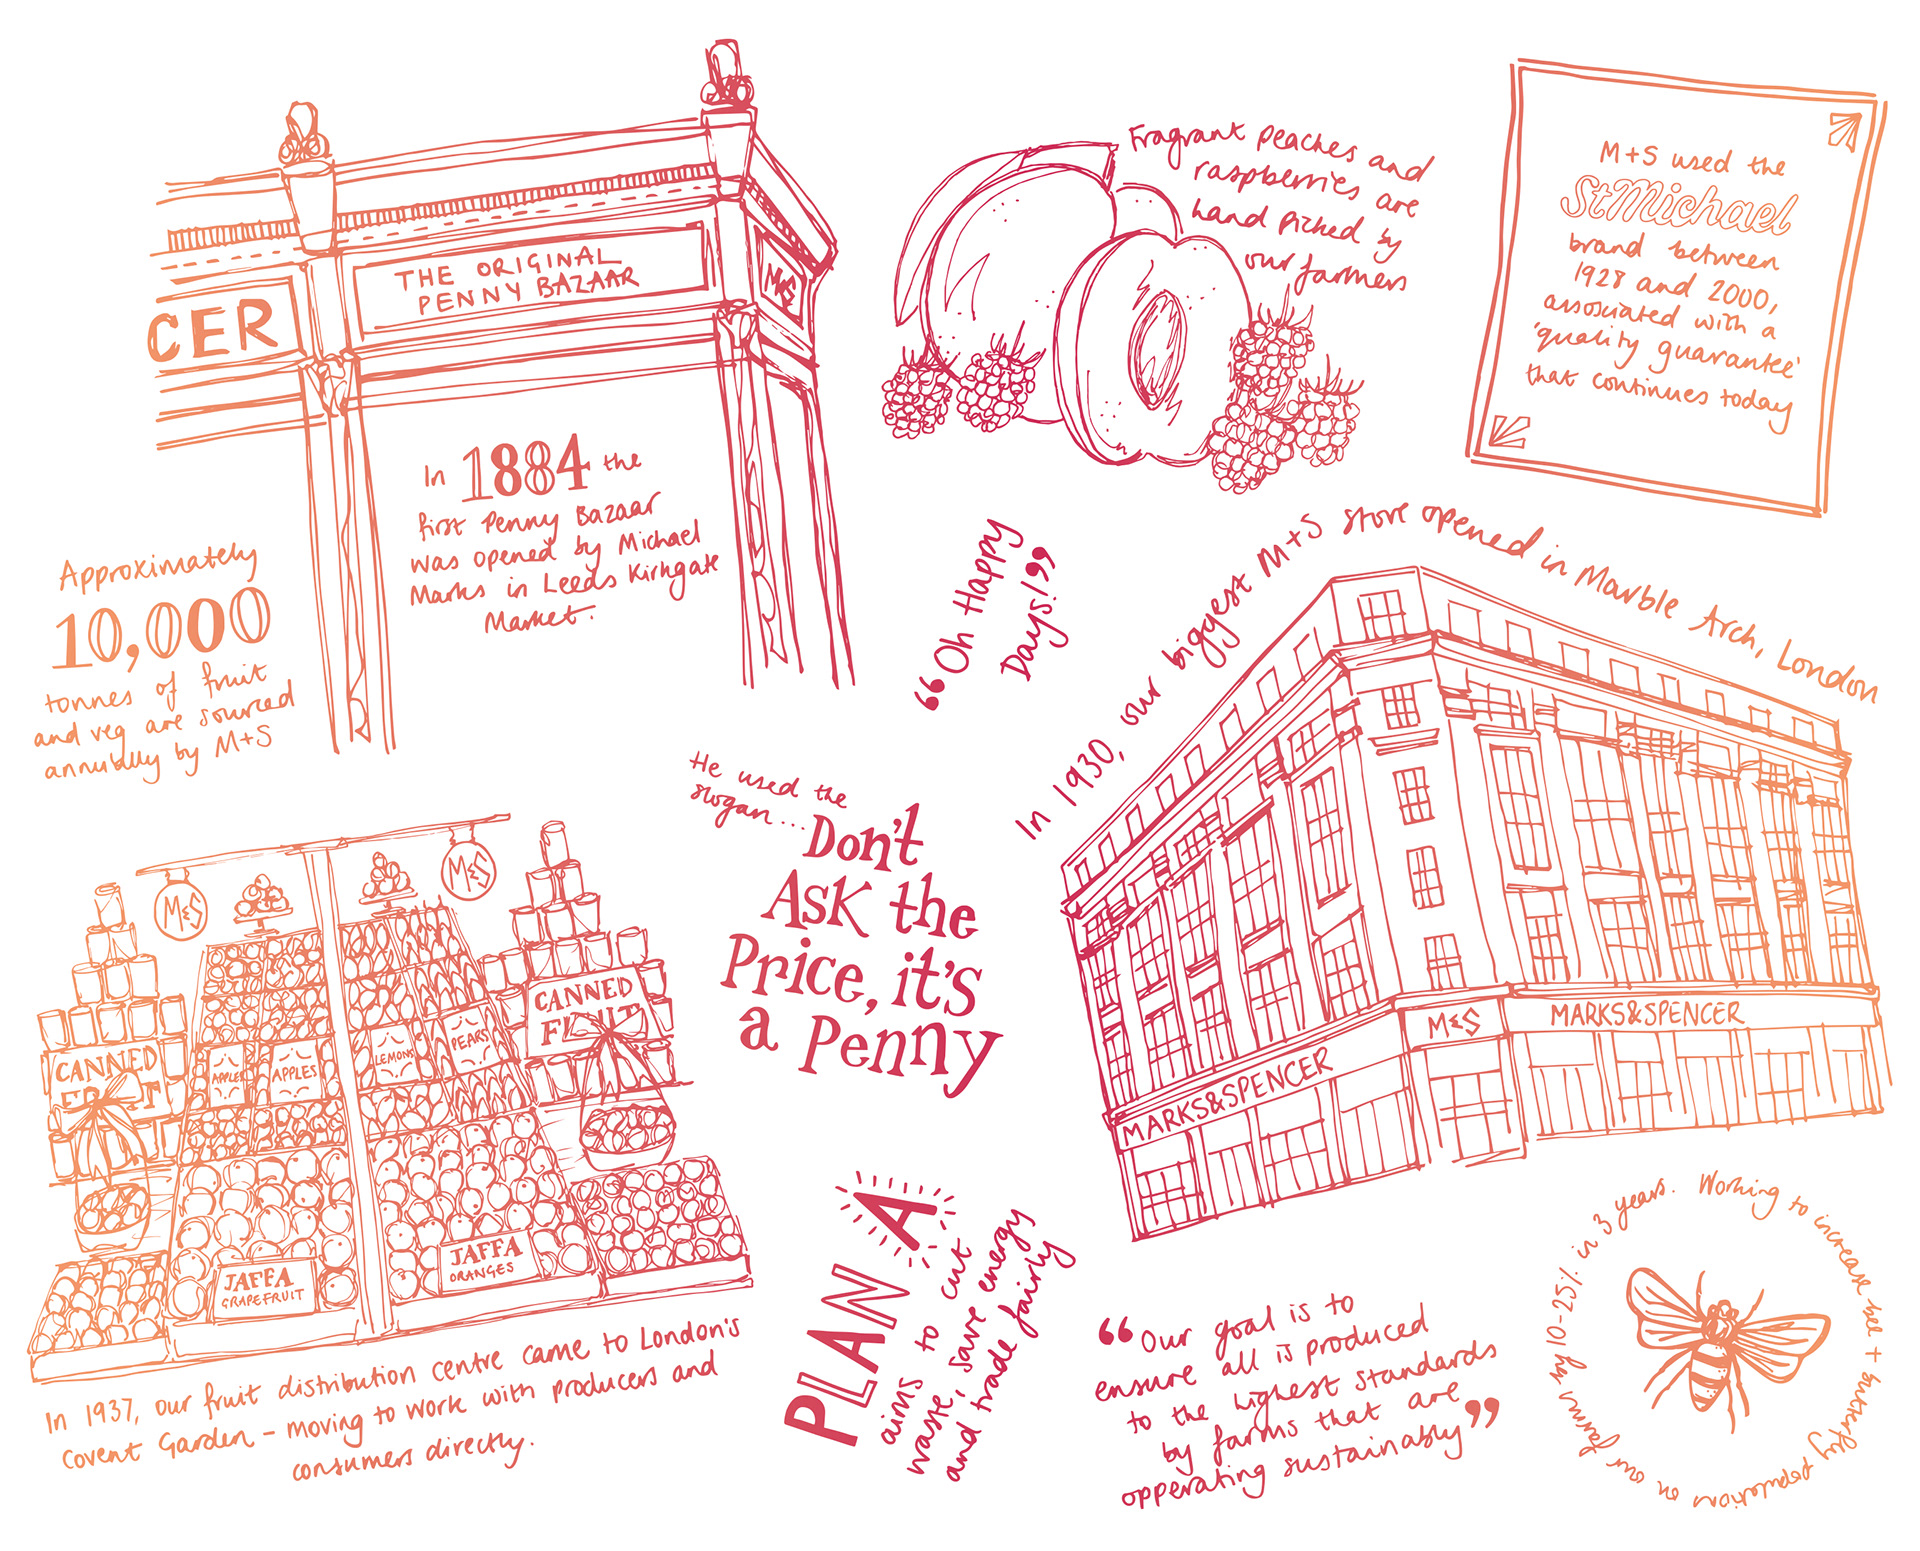 CER
THE ORIGINAL
PENNY BAZAAR
M&S
In 1884 the
first Penny Bazaar
was opened by Michael
Marks in Leeds Kirkgate
Market.
Fragrant peaches and
raspberries are
hand picked by
our farmers
M+S used the
StMichael
brand between
1928 and 2000,
associated with a
'quality guarantee'
that continues today
Approximately
10,000
tonnes of fruit
and veg are sourced
annually by M+S
“Oh Happy
Days!”
In 1930, our biggest M+S store opened in Marble Arch, London
MARKS&SPENCER
M&S
MARKS&SPENCER
He used the
slogan...
Don't
Ask the
Price, it's
a Penny
M&S
M&S
CANNED
FRUIT
CANNED
FRUIT
APPLES
APPLES
LEMONS
PEARS
JAFFA
GRAPEFRUIT
JAFFA
ORANGES
In 1937, our fruit distribution centre came to London's
Covent Garden – moving to work with producers and
consumers directly.
PLAN A
aims to cut
waste, save energy
and trade fairly
“Our goal is to
ensure all is produced
to the highest standards
by farms that are
opperating sustainably”
Working to increase bee + butterfly populations on our farms by 10-25% in 3 years.